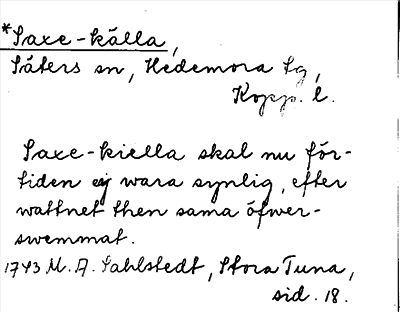 *Saxe-källa,
Säters sn, Hedemora tg,
Kopp. l.
Saxe-kiella skal nu för-
tiden ej wara synlig, efter
wattnet then sama öfwer-
swemmat.
1743 M. A. Sahlstedt, Stora Tuna,
sid. 18.